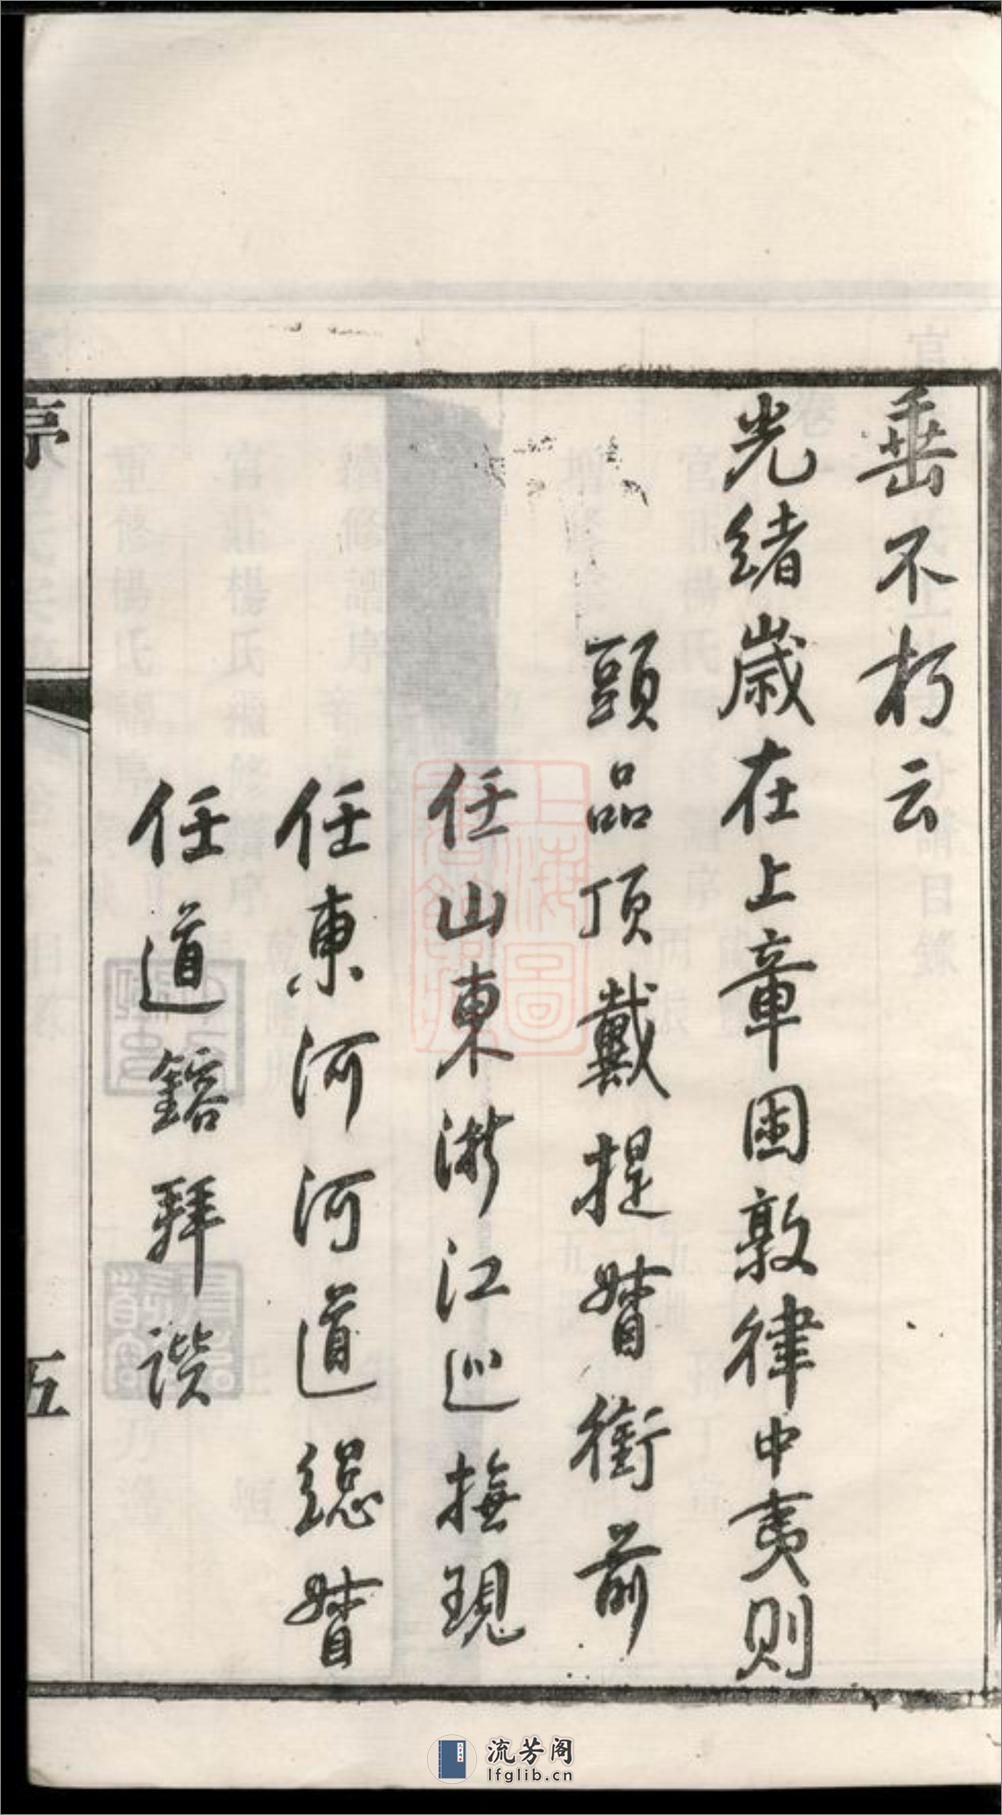 垂不朽云
光緒歲在上章困敦律中夷則
頭品頂戴提督銜前
任山東浙江巡撫現
任東河河道總督
任道鎔拜譔
五
上海圖
流芳阁
lfglib.cn